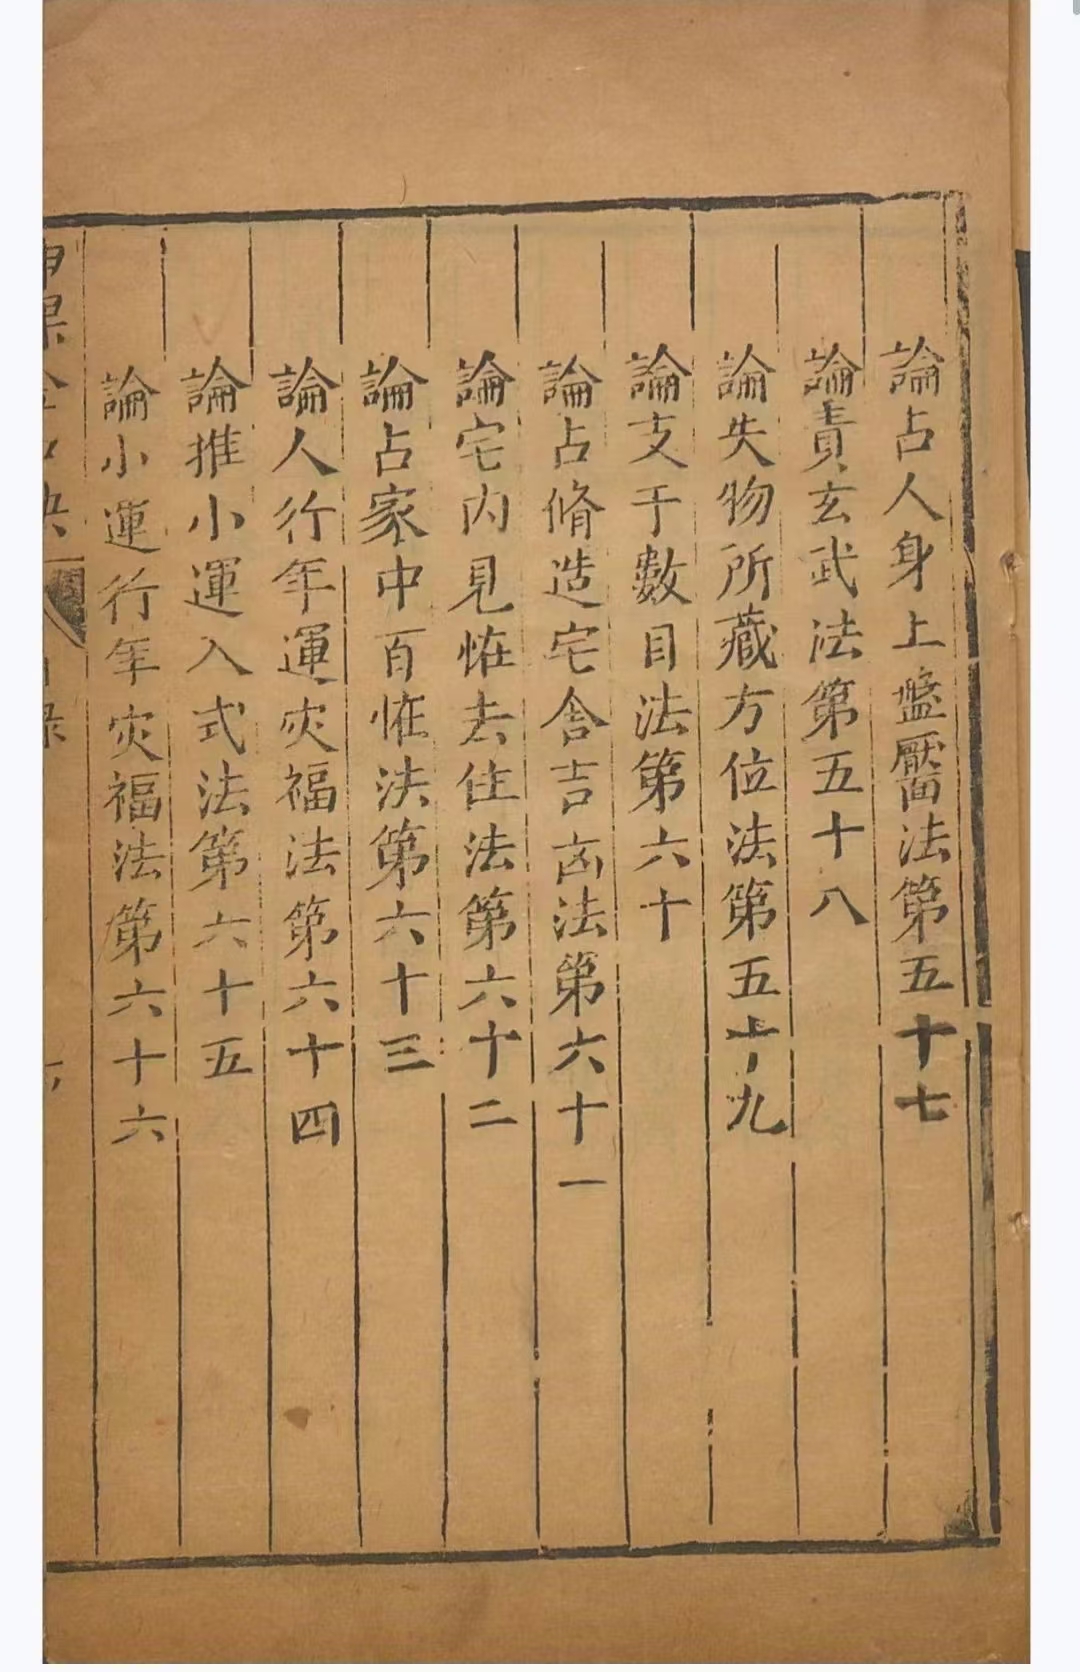 論占人身上盤靨法第五十七
論責玄武法第五十八
論失物所藏方位法第五十九
論支于數目法第六十
論占脩造宅舎吉凶法第六十一
論宅内見恠去住法第六十二
論占家中百恠法第六十三
論人行年運灾福法第六十四
論推小運入式法第六十五
論小運行年灾福法第六十六